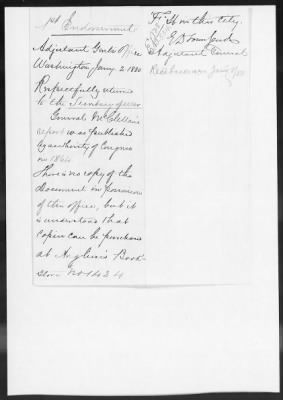 1st Endorsement
Adjutant Genls Office
Washington Jany 2 1880
Respectfully returned
to the Secretary of War
General McClellan's
report was published
by authority of Congress
in 1864
There is no copy of the
document in possession
of this office, but it
is understood that
copies can be purchased
at Anglim's Book
Store No 1424
F St. in this city.
E D Townsend
Adjutant General